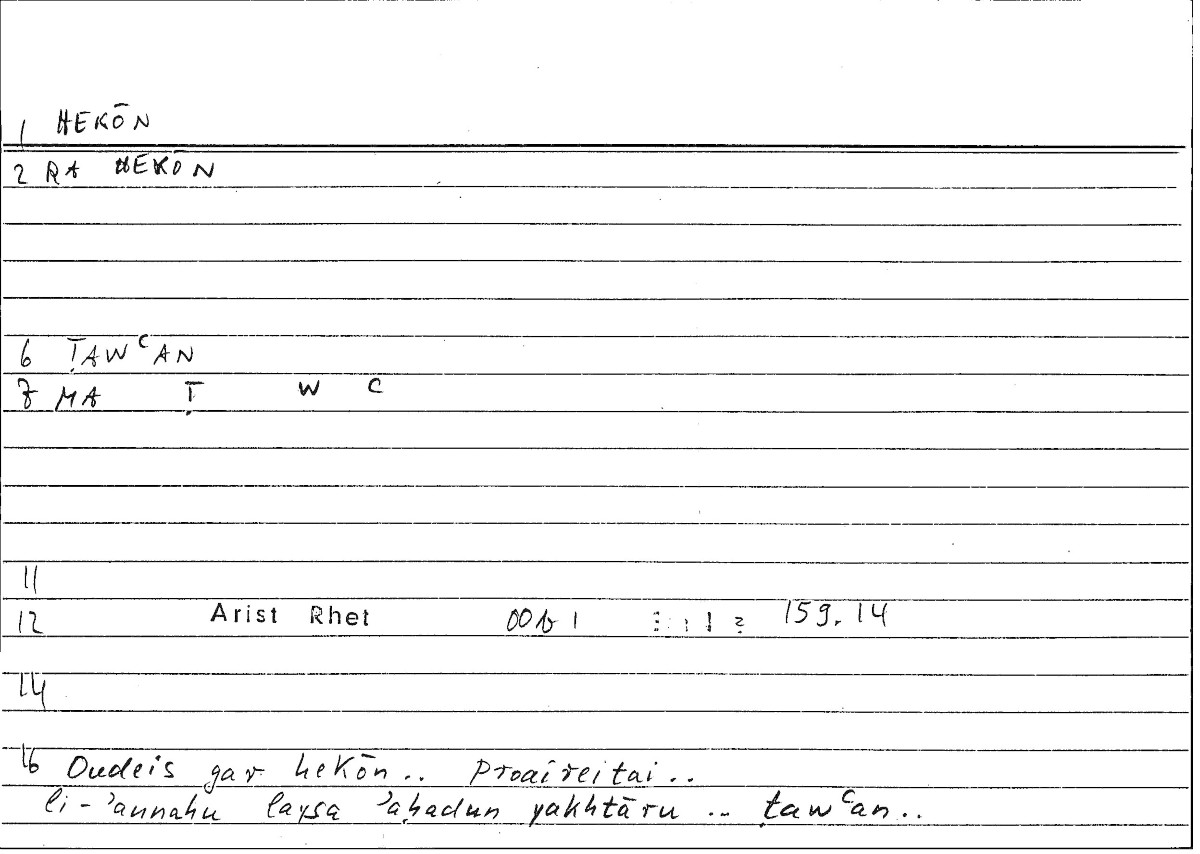 1 HEKŌN
2 RA HEKŌN
6 ṬAWᶜAN
7 MA Ṭ W C
11
12 Arist Rhet 00b1 159.14
14
16 Oudeis gar hekōn.. proaireitai..
li-ʾannahu laysa ʾaḥadun yakhtāru .. ṭawᶜan..